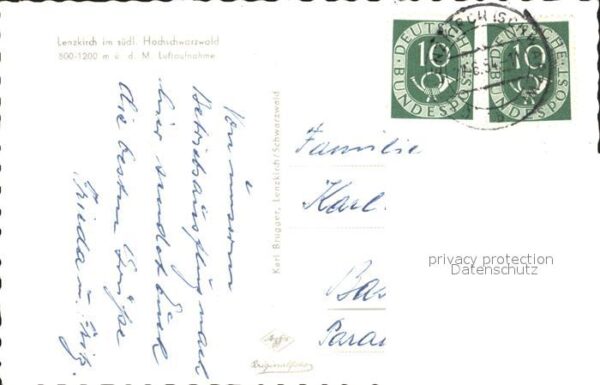 Lenzkirch im südl. Hochschwarzwald
800-1200 m ü. d. M. Luftaufnahme
Von unserm
Betriebsausflug nach
hier sendet Euch
die besten Grüße
Frieda u. Fritz.
Karl Brugger, Lenzkirch/Schwarzwald
Agfa
Originalfoto
10
DEUTSCHE
BUNDESPOST
10
DEUTSCHE
BUNDESPOST
Familie
Karl
Bas
Parad
privacy protection
Datenschutz